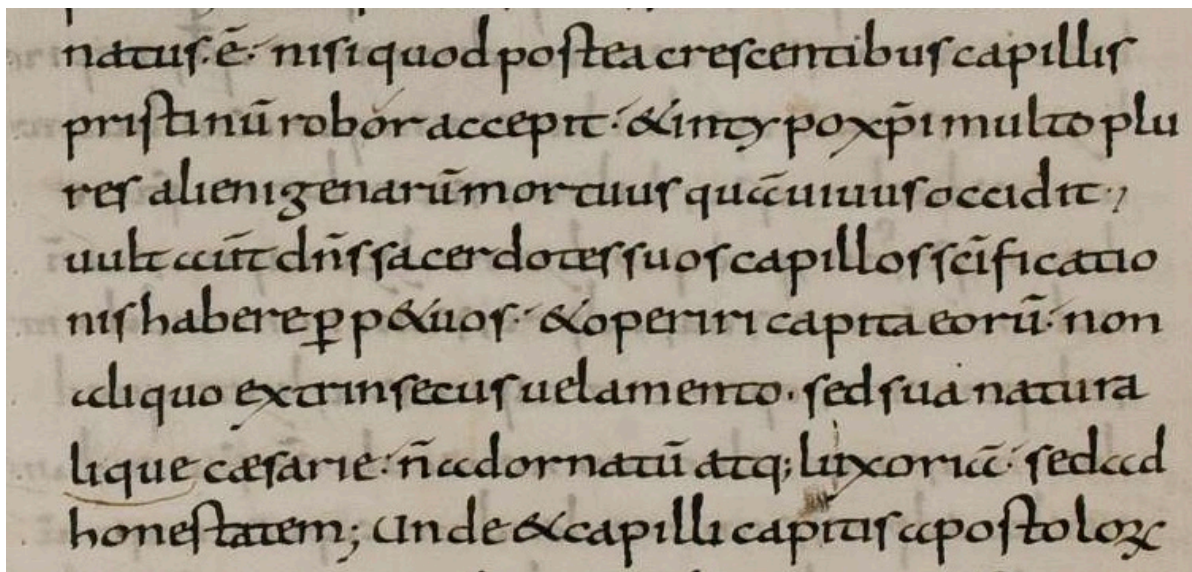 natus. ē. nisi quod postea crescentibus capillis
pristinū robor accepit. & in typo xp̄i multo plu
res alienigenarū mortuus quā uiuus occidit;
uult aūt dn̄s sacerdotes suos capillos sc̄ificatio
nis habere ꝑp&uos. & operiri capita eorū. non
aliquo extrinsecus uelamento. sed sua natura
lique cæsarie. n̄ ad ornatū atq; luxoriā. sed ad
honestatem; Unde & capilli capitis apostoloꝝ